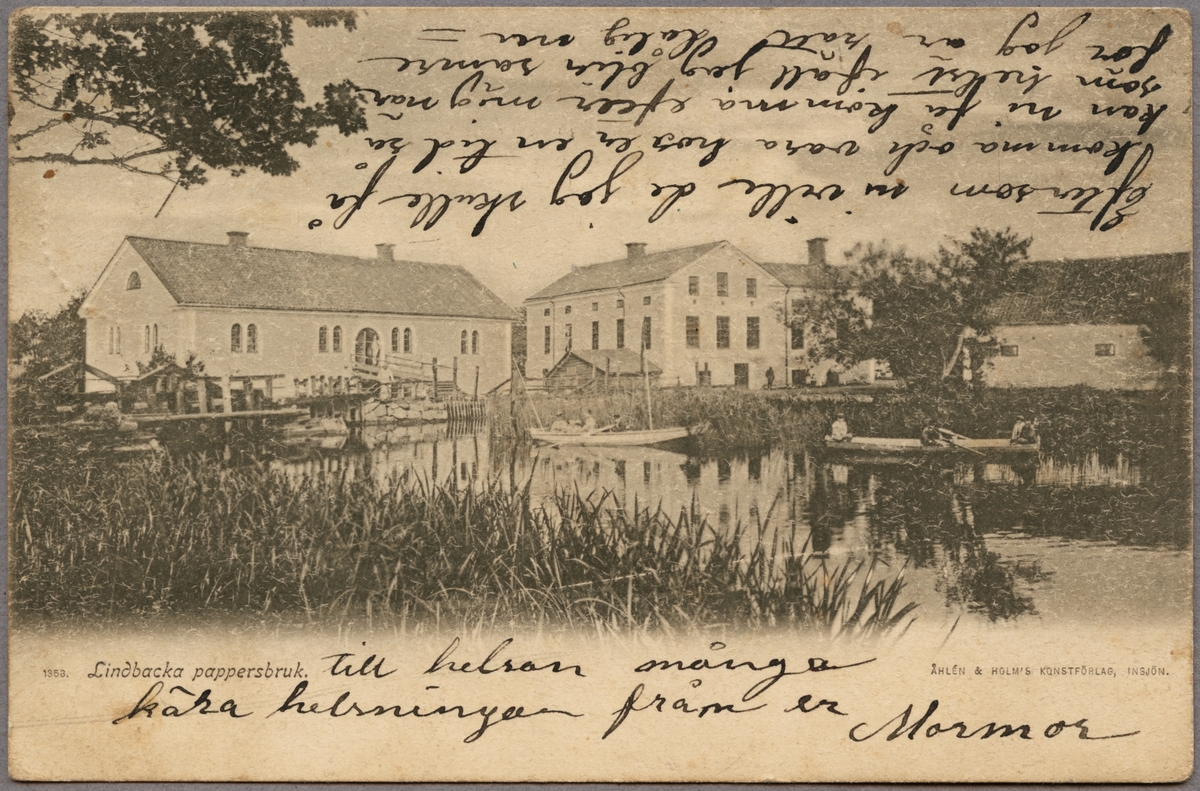 Eftersom ni ville de jag skulle få
komma och vara hos er en tid så
kan ni ju komma efter mig när
som helst ifall jag blir sämre
för jag är rätt dålig nu =
till helsan många
kära helsningar från er
Mormor
1353. Lindbacka pappersbruk.
ÅHLÉN & HOLM'S KONSTFÖRLAG, INSJÖN.